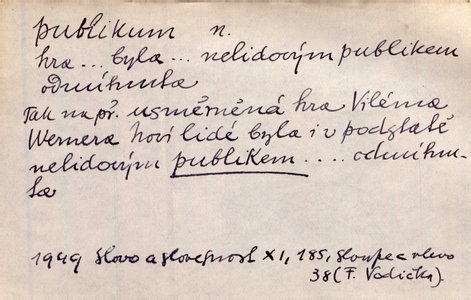 publikum n.
hra ... byla ... nelidovým publikem
odmítnuta
Tak na př. usměrněná hra Viléma
Wernera Noví lidé byla i v podstatě
nelidovým publikem .... odmítnu-
ta
1949 Slovo a slovesnost XI, 185, sloupec vlevo
38 (F. Vodička).